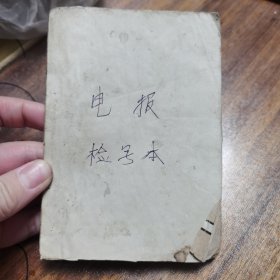 电报
检号本